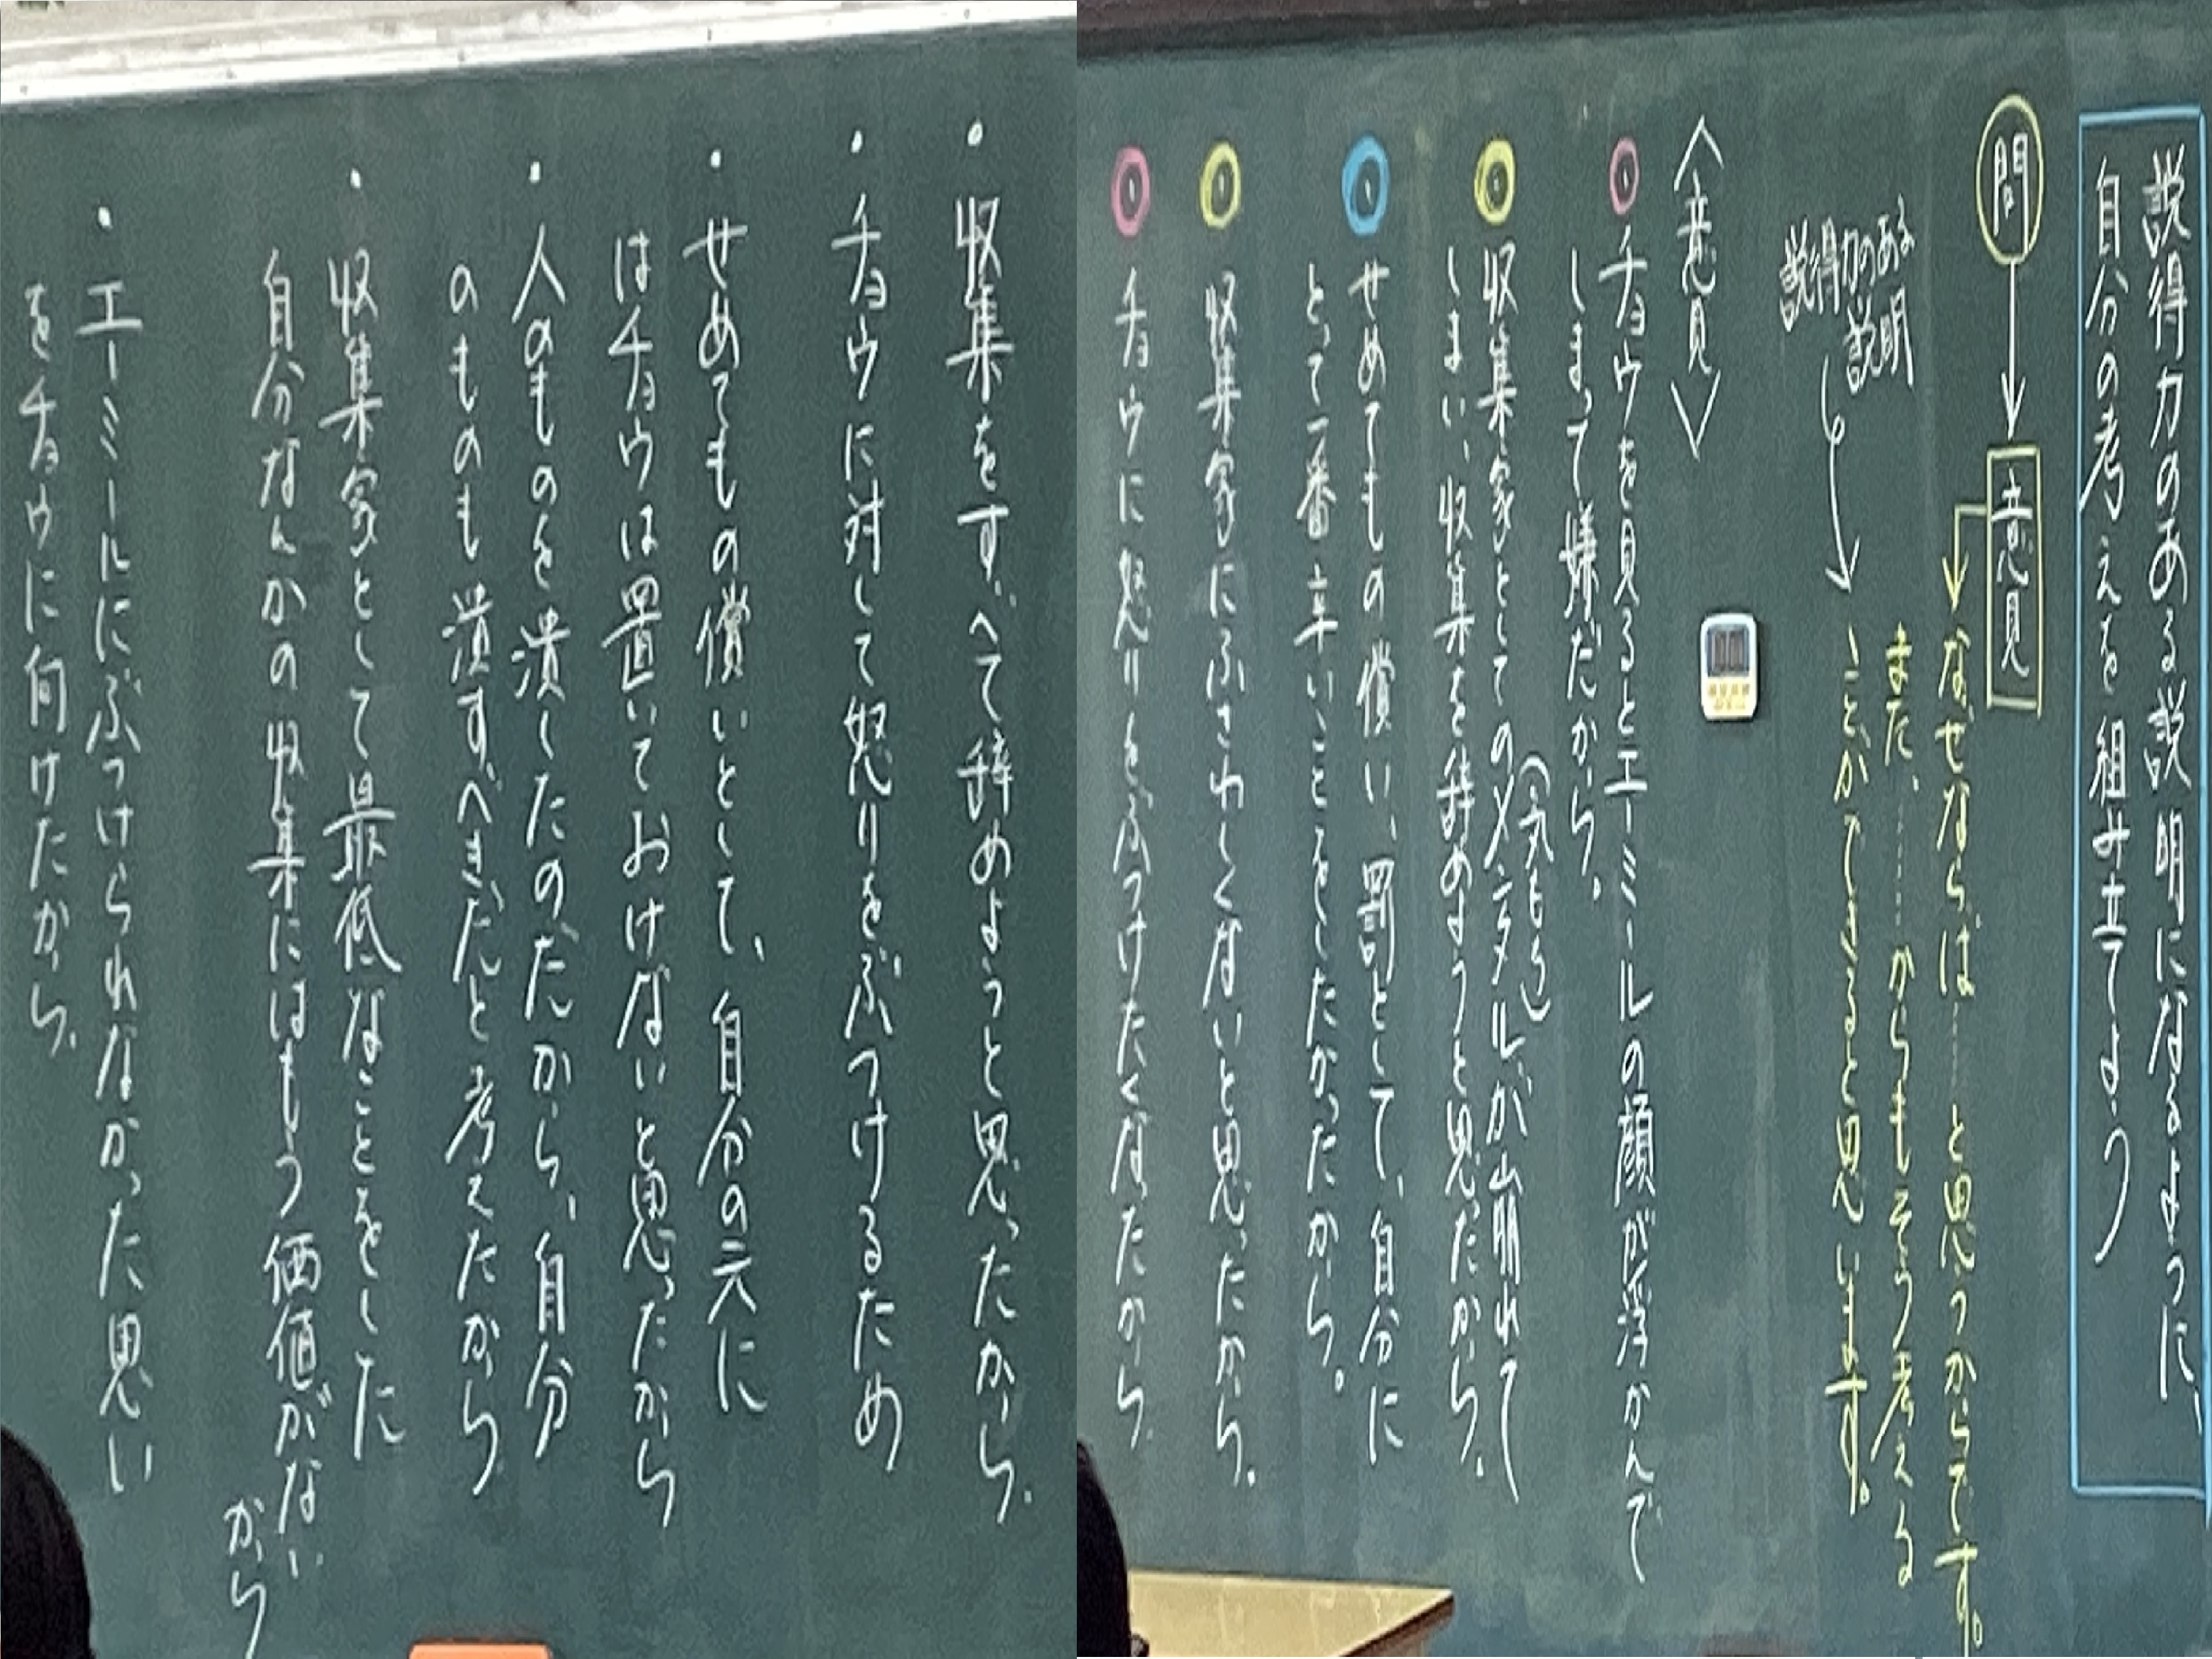 説得力のある説明になるように、
自分の考えを組み立てよう
問→意見
なぜならば……と思うからです。
また、……からもそう考える
ことができると思います。
説得力のある説明
〈意見〉
・チョウを見るとエーミールの顔が浮かんで
しまって嫌だから。
・収集家としてのメンタルが崩れて
(気もち)
しまい、収集を辞めようと思ったから。
・せめてもの償い、罰として、自分に
とって一番辛いことをしたかったから。
・収集家にふさわしくないと思ったから。
・チョウに怒りをぶつけたくなったから。
・収集をすべて辞めようと思ったから。
・チョウに対して怒りをぶつけるため
・せめてもの償いとして、自分の元に
はチョウは置いておけないと思ったから
・人のものを潰したのだから、自分
のものも潰すべきだと考えたから
・収集家として最低なことをした
自分なんかの収集にはもう価値がない
から
・エーミールにぶつけられなかった思い
をチョウに向けたから。